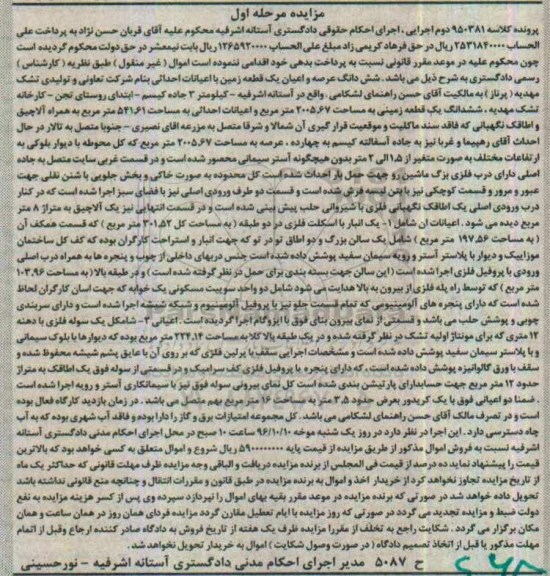 مزایده مرحله اول
پرونده کلاسه ۹۵۰۳۸۱ دوم اجرایی ، اجرای احکام حقوقی دادگستری آستانه اشرفیه محکوم علیه آقای قربان حسن نژاد به پرداخت علی
الحساب ۲۵۳۱۸۴۰۰۰ ریال در حق فرهاد کریمی زاد مبلغ علی الحساب ۱۲۶۵۹۲۰۰۰ ریال بابت نیمعشر در حق دولت محکوم گردیده است
چون محکوم علیه در موعد مقرر قانونی نسبت به پرداخت بدهی خود اقدامی ننموده است اموال ( غیر منقول ) طبق نظریه ( کارشناس )
رسمی دادگستری به شرح ذیل می باشد . شش دانگ عرصه و اعیان یک قطعه زمین با اعیانات احداثی بنام شرکت تعاونی و تولیدی تشک
مهدیه ( پرناز ) به مالکیت آقای حسن راهنمای لشکامی . واقع در آستانه اشرفیه - کیلومتر ۳ جاده کیسم - ابتدای روستای تجن - کارخانه
تشک مهدیه ، ششدانگ یک قطعه زمینی به مساحت ۲۰۰۵،۶۷ متر مربع و اعیانات احداثی به مساحت ۵۴۱،۶۱ متر مربع به همراه آلاچیق
و اطاقک نگهبانی که فاقد سند مالکیت و موقعیت قرار گیری آن شمالا و شرقا متصل به مزرعه آقای نصیری - جنوبا متصل به تالار در حال
احداث آقای رهپیما و غربا نیز به جاده آسفالته کیسم به چهارده . عرصه به مساحت ۲۰۰۵،۶۷ متر مربع که کل محوطه با دیوار بلوکی به
ارتفاعات مختلف به صورت متغیر از ۱،۵ الی ۲ متر بدون هیچگونه آستر سیمانی محصور شده است و در قسمت غربی سایت متصل به جاده
اصلی دارای درب فلزی بزرگ ماشین رو جهت حمل بار احداث شده است کل محدوده به صورت خاکی و بخش جلویی با شن نقلی جهت
عبور و مرور و قسمت کوچکی نیز با بتن لیسه فرش شده است و قسمت دو طرف ورودی اصلی نیز با فضای سبز اجرا شده است که در کنار
درب ورودی اصلی یک اطاقک نگهبانی فلزی با شیروانی حلب پیش بینی شده است و در قسمت انتهایی نیز یک آلاچیق به متراژ ۸ متر
مربع دیده می شود . اعیانات آن شامل ۱- یک انبار با اسکلت فلزی در دو طبقه ( به مساحت کل ۳۰۱،۵۲ متر مربع ) که قسمت همکف آن
( به مساحت ۱۹۷،۵۶ متر مربع ) شامل یک سالن بزرگ و دو اطاق تو در تو که جهت انبار و استراحت کارگران بوده که کف کل ساختمان
موزاییک و دیوار با پلاستر آستر و رویه سیمان سفید پوشش داده شده است جنس دربهای داخلی از چوب و پنجره ها به همراه درب اصلی
ورودی با پروفیل فلزی اجرا شده است ( این سالن جهت بسته بندی برای حمل در نظر گرفته شده است ) و در طبقه بالا ( به مساحت ۱۰۳،۹۶
متر مربع ) که توسط راه پله فلزی از بیرون به بالا هدایت می شود شامل دو واحد سوییت مسکونی یک خوابه که جهت اسان کارگران لحاظ
شده است که دارای پنجره های آلومینیومی که تمام قسمت جلو نیز با پروفیل آلومینیوم و شبکه شیشه اجرا شده است و دارای سربندی
چوبی و پوشش حلب می باشد و قسمتی از نمای بیرون بنای فوق با ایزوگام اجرا گردیده است . اعیانی ۲- شامل یک سوله فلزی با دهنه
۱۲ متری که برای مونتاژ اولیه تشک در نظر گرفته شده و در یک طبقه بالا کلا به مساحت ۲۲۴،۱۴ متر مربع بوده که دیوارها با بلوک سیمانی
و با پلاستر سیمان سفید پوشش داده شده است و مشخصات اجرایی سقف با پرلین فلزی که بر روی آن با عایق پشم شیشه محفوظ شده و
سقف با ورق گالوانیزه پوشش داده شده است . که دارای پنجره با پروفیل فلزی کف سرامیک و در قسمتی از سوله فوق یک اطاقک به متراژ
حدود ۱۲ متر مربع جهت حسابدارای پارتیشن بندی شده است کل نمای بیرونی سوله فوق نیز با سیمانکاری آستر و رویه اجرا شده است
. ضمنا دو اعیانی فوق با یک کریدور بعرض حدود ۳،۵ متر به مساحت ۱۶ متر مربع بهم متصل می باشد . در زمان بازدید کارگاه فعال بوده
است و در تصرف مالک آقای حسن راهنمای لشکامی می باشد . کل مجموعه امتیازات برق و گاز را دارا بوده و فاقد آب شهری بوده که به آب
چاه دسترسی دارد . این اجرا در نظر دارد در روز یک شنبه موخه ۹۶/۱۰/۱۰ ساعت ۱۰ صبح در محل اجرای احکام مدنی دادگستری آستانه
اشرفیه نسبت به فروش اموال مذکور از طریق مزایده از قیمت پایه ۵۹۰۰۰۰۰۰۰۰ ریال شروع و اموال متعلق به کسی خواهد بود که بالاترین
قیمت را پیشنهاد نماید ده درصد از قیمت فی المجلس از برنده مزایده دریافت و الباقی وجه مزایده ظرف مهلت قانونی که حداکثر یک ماه
از تاریخ مزایده تجاوز نخواهد کرد از خریدار اخذ و اموال به برنده مزایده در طبق قانون و مقررات انتقال و چنانچه منع قانونی نداشته باشد
تحویل داده خواهد شد در صورتی که برنده مزایده در موعد مقرر بقیه بهای اموال را نپردازد سپرده وی پس از کسر هزینه مزایده به نفع
دولت ضبط و مزایده تجدید می گردد در صورتی که روز مزایده با ایام تعطیل مقارن گردد مزایده فردای همان روز در همان ساعت و همان
مکان برگزار می گردد . شکایت راجع به تخلف از مقررا مزایده ظرف یک هفته از تاریخ فروش به دادگاه صادر کننده ارجاع وقبل از اتمام
مهلت مذکور یا قبل از اتخاذ تصمیم دادگاه ( در صورت وصول شکایت ) اموال به خریدار تحویل نخواهد شد .
ح ۵۰۸۷ مدیر اجرای احکام مدنی دادگستری آستانه اشرفیه - نورحسینی